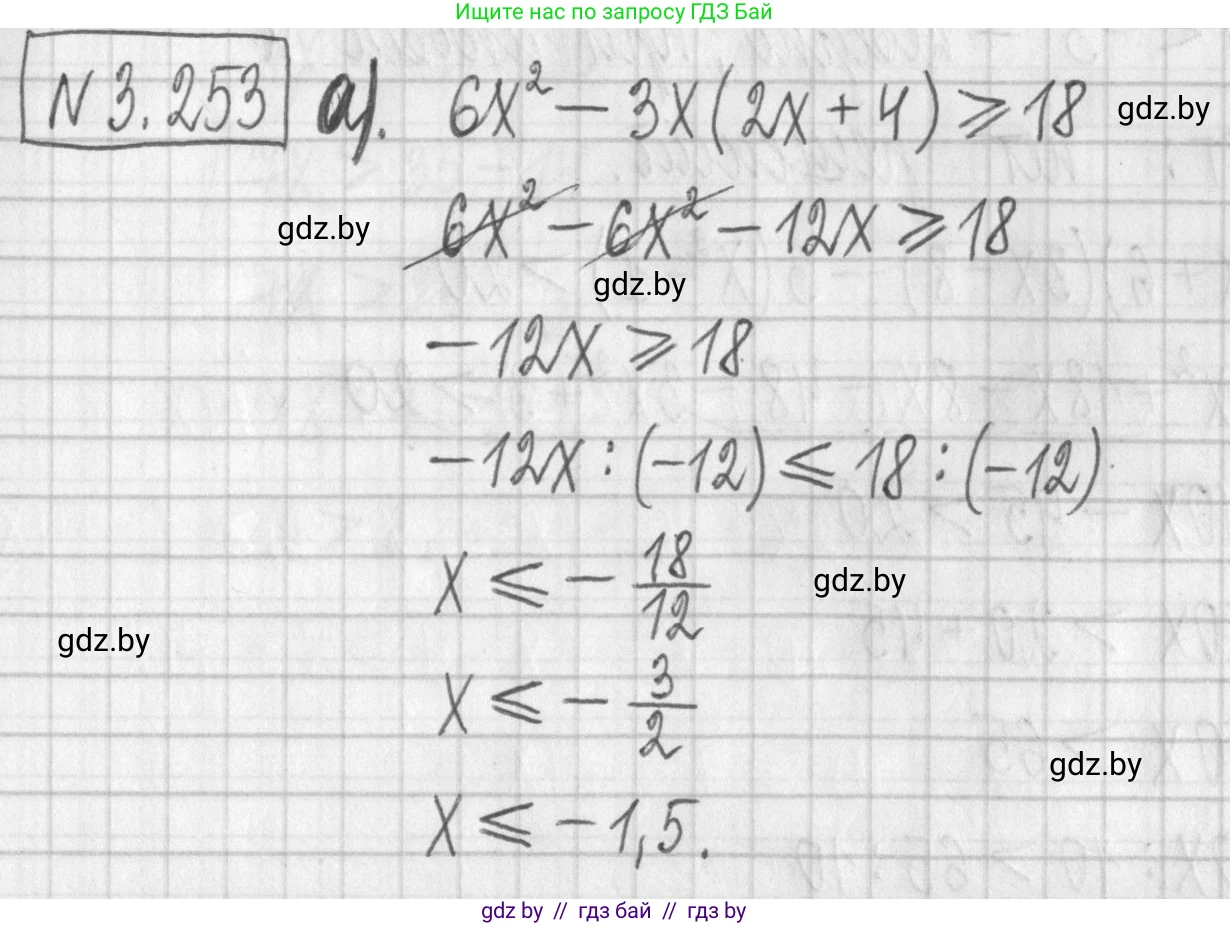 Ищите нас по запросу ГДЗ Бай
N 3.253 а). 6x² − 3x(2x + 4) ⩾ 18 gdz.by
gdz.by 6x² − 6x² − 12x ⩾ 18
gdz.by
−12x ⩾ 18
−12x : (−12) ⩽ 18 : (−12)
x ⩽ − 18/12 gdz.by
gdz.by
x ⩽ − 3/2
gdz.by
x ⩽ −1,5.
gdz by // гдз бай // гдз by